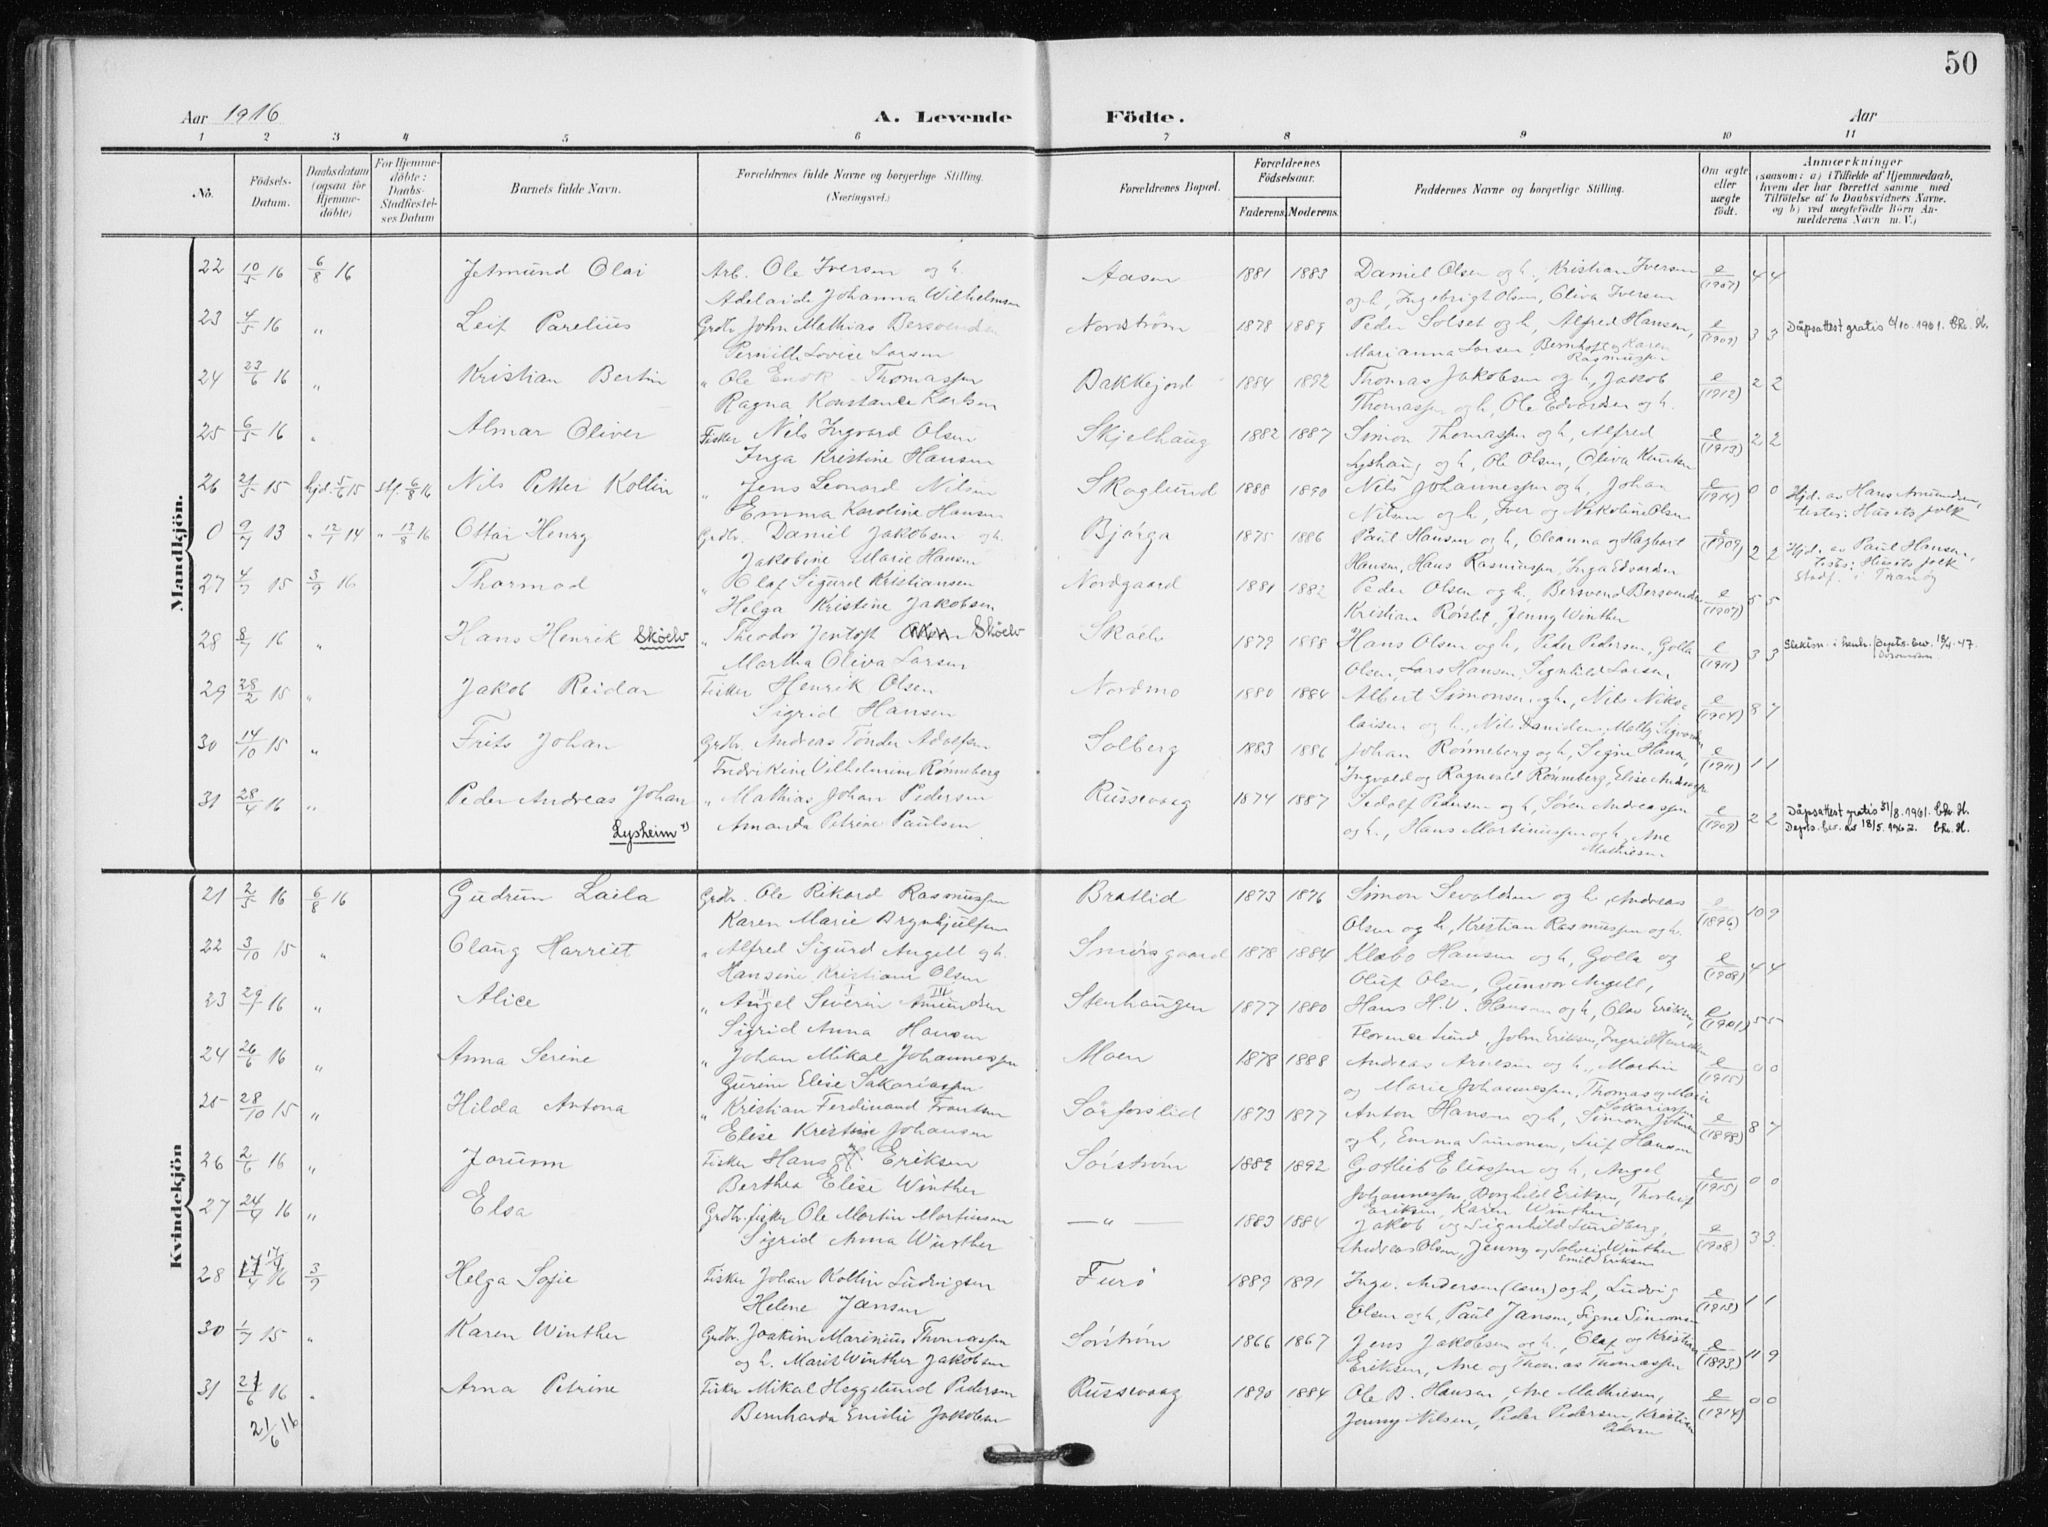 50
Aar 1916
A. Levende
Födte.
Aar
1 2 3 4 5 6 7 8 9 10 11
No.
Födsels-Datum.
Daabsdatum (ogsaa for Hjemme-döbte)
For Hjemme-döbte: Daabs-Stadfæstel-ses Datum
Barnets fulde Navn.
Forældrenes fulde Navne og borgerlige Stilling. (Næringsvei.)
Forældrenes Bopæl.
Forældrenes Födselsaar.
Faderens. Moderens.
Faddernes Navne og borgerlige Stilling.
Om ægte eller uægte födt.
Anmærkninger
(saasom: a) i Tilfælde af Hjemmedaab,
hvem der har forrettet samme med
Tilföielse af to Daabsvidners Navne.
og b) ved uægtefödte Börn An-
melderens Navn m. V.)
Mandkjön.
22 10/5 16 6/8 16 Jetmund Olai Arb. Ole Iversen og h. Aasen 1881 1883 Daniel Olsen og h., Kristian Iversen e 4 4
Adelaide Johanna Wilhelmsen og h, Ingebrigt Olsen, Oliva Iversen (1907)
23 4/5 16 " Leif Parelius Grdbr. John Mathias Bersvendsen Nordstrøm 1878 1889 Peder Solset og h, Alfred Hansen, e (1909) 3 3 Dåpsattest gratis 4/10.1961. Chr. H.
Pernille Lovise Larsen Marianna Larsen, Bernhoft og Karen Rasmussen
24 23/6 16 " Kristian Bertin " Ole Enok Thomassen Bakkejord 1884 1892 Thomas Jakobsen og h, Jakob e (1912) 2 2
Ragna Konstance Karlsen Thomassen og h, Ole Edvardsen og h.
25 6/5 16 " Almar Oliver Fisker Nils Ingvard Olsen Skjelhaug 1882 1887 Simon Thomassen og h, Alfred e (1913) 2 2
Inga Kristine Hansen Lyshaug og h, Ole Olsen, Oliva Knutsen
26 21/5 15 hjd. 5/6 15 stf. 6/8 16 Nils Petter Kollin " Jens Leonard Nilsen Skoglund 1888 1890 Nils Johannessen og h, Johan e (1914) 0 0 Hjd. av Hans Amundsen,
Emma Karoline Hansen Nilsen og h, Iver og Nikoline Olsen testes: Husets folk
0 9/7 13 " 12/1 14 " 13/8 16 Ottar Henry Grdbr. Daniel Jakobsen og h. Bjørga 1875 1886 Paul Hansen og h, Oleanna og Hagbart e (1909) 2 2 Hjd. av Paul Hansen,
Jakobine Marie Hansen Hansen, Hans Rasmussen, Inga Edvardsen testes: Husets folk
Stadf. i Tranøy
27 4/7 15 3/9 16 Thormod " Olaf Sigurd Kristiansen Nordgaard 1881 1882 Peder Olsen og h, Bersvend Bersvendsen e (1907) 5 5
Helga Kristine Jakobsen Kristian Rørslet, Jenny Winther
28 8/7 16 " Hans Henrik Skóelv " Theodor Jentoft Skóelv Skóelv 1879 1888 Hans Olsen og h, Peder Pedersen, Golla e (1911) 3 3
Martha Oliva Larsen Olsen, Lars Hansen, Signhild Larsen
29 28/2 15 " Jakob Reidar Fisker Henrik Olsen Nordmo 1880 1884 Albert Simonsen og h, Nils Niko- e (1904) 8 7
Sigrid Hansen laisen og h,
30 14/10 15 " Frits Johan Grdbr. Andreas Tønder Adolfsen Solberg 1883 1886 Johan Rønneberg og h, Signe Hansen, e (1911) 1 1
Fredrikine Vilhelmine Rønneberg Ingvald og Ragnvald Rønneberg, Elise Andersen
31 28/4 16 " Peder Andreas Johan " Mathias Johan Pedersen Russevaag 1874 1887 Sedolf Pedersen og h, Søren Andreassen e (1909) 2 2 Dåpsattest gratis 31/8.1961. Chr. H.
Lysheim Amanda Petrine Paulsen og h., Hans Martinussen og h, Ane Mathiesen Depts. bev. av 18/5.1962. Chr. H.
Kvindekjön
21 2/5 16 6/8 16 Gudrun Laila Grdbr. Ole Rikard Rasmussen Bratlid 1873 1876 Simon Sevaldsen og h, Andreas e (1896) 10 9
Karen Marie Brynhjulfsen Olsen og h, Kristian Rasmussen og h.
22 3/10 15 " Olaug Harriet " Alfred Sigurd Angell og h. Smørsgaard 1878 1884 Klæbo Hansen og h, Golla og e (1908) 4 4
Hansine Kristiane Olsen Oluf Olsen, Gunvor Angell,
23 29/1 16 " Alice " Angel Severin Amundsen Stenhaugen 1877 1880 Hans H.V. Hansen og h, Olav Eriksen, e (1901) 5 5
Sigrid Anna Hansen Florence Lund, John Eriksen, Ingrid Henriksen
24 26/6 16 " Anna Serine " Johan Mikal Johannessen Moen 1878 1888 Andreas Arnesen og h., Martin e (1915) 0 0
Gurine Elise Sakariassen og Marie Johannessen, Thomas og Marie Sakariassen
25 28/10 15 " Hilda Antona " Kristian Ferdinand Frantsen Sørforslid 1873 1877 Anton Hansen og h, Simon Johnsen e (1898) 8 7
Elise Kristine Johansen og h, Emma Simonsen, Leif Hansen
26 2/6 16 " Jorunn Fisker Hans H Eriksen Sørstrøm 1889 1892 Gotlieb Eliassen og h, Angel e (1915) 0 0
Berthea Elise Winther Johannessen, Borghild Eriksen, Thorleif Eriksen, Karen Winther
27 24/4 16 " Elsa Grdbr. fisker Ole Martin Martinsen — " — 1883 1884 Jakob og Signhild Lundberg, e (1908) 3 3
Sigrid Anna Winther Andreas Olsen, Jenny og Solveig Winther Emil Eriksen
28 17/4 16 3/9 Helga Sofie Fisker Johan Kollin Ludvigsen Furø 1889 1891 Ingv. Andersen (lærer) og h, Ludvig e (1913) 1 1
Helene Jansen Olsen og h, Paul Jansen, Signe Simonsen
30 1/7 15 " Karen Winther Grdbr. Joakim Marinius Thomassen Sørstrøm 1866 1867 Jens Jakobsen og h, Olaf og Kristian e (1893) 11 9
og h. Marit Winther Jakobsen Eriksen, Ane og Thomas Thomassen
31 21/6 16 " Arna Petrine Fisker Mikal Heggelund Pedersen Russevaag 1890 1884 Ole B. Hansen, Ane Mathiesen, e (1914) 0 0
21/6 16 Bernharda Emilie Jakobsen Jenny Nilsen, Peder Pedersen, Kristian Pedersen